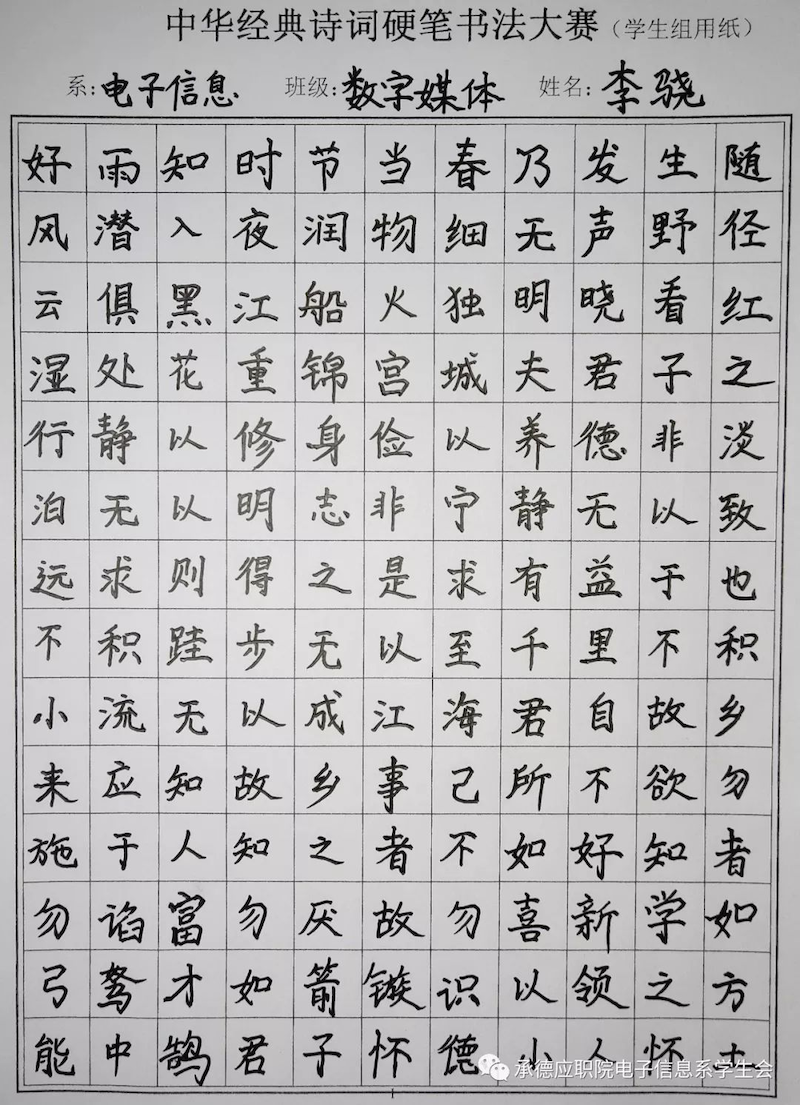 中华经典诗词硬笔书法大赛（学生组用纸）
系:电子信息 班级:数字媒体 姓名:李骁
好雨知时节当春乃发生随
风潜入夜润物细无声野径
云俱黑江船火独明晓看红
湿处花重锦宫城夫君子之
行静以修身俭以养德非淡
泊无以明志非宁静无以致
远求则得之是求有益于也
不积跬步无以至千里不积
小流无以成江海君自故乡
来应知故乡事己所不欲勿
施于人知之者不如好知者
勿谄富勿厌故勿喜新学如
弓弩才如箭镞识以领之方
能中鹄君子怀德小人怀土
承德应职院电子信息系学生会